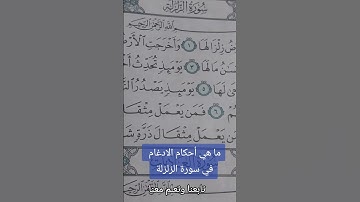 سُورَةُ الزَّلْزَلَةِ
بِسْمِ اللَّهِ الرَّحْمَٰنِ الرَّحِيمِ
ضُ زِلْزَالَهَا ١ وَأَخْرَجَتِ ٱلْأَرْضُ
سَٰنُ مَا لَهَا ٣ يَوْمَئِذٍ تُحَدِّثُ أَخْ
ىٰ لَهَا ٥ يَوْمَئِذٍ يَصْدُرُ النَّ
٦ فَمَن يَعْمَلْ مِثْقَا
ن يَعْمَلْ مِثْقَالَ ذَرَّةٍ شَ
ما هي أحكام الادغام
في سورة الزلزلة
تابعنا وتعلم معنا